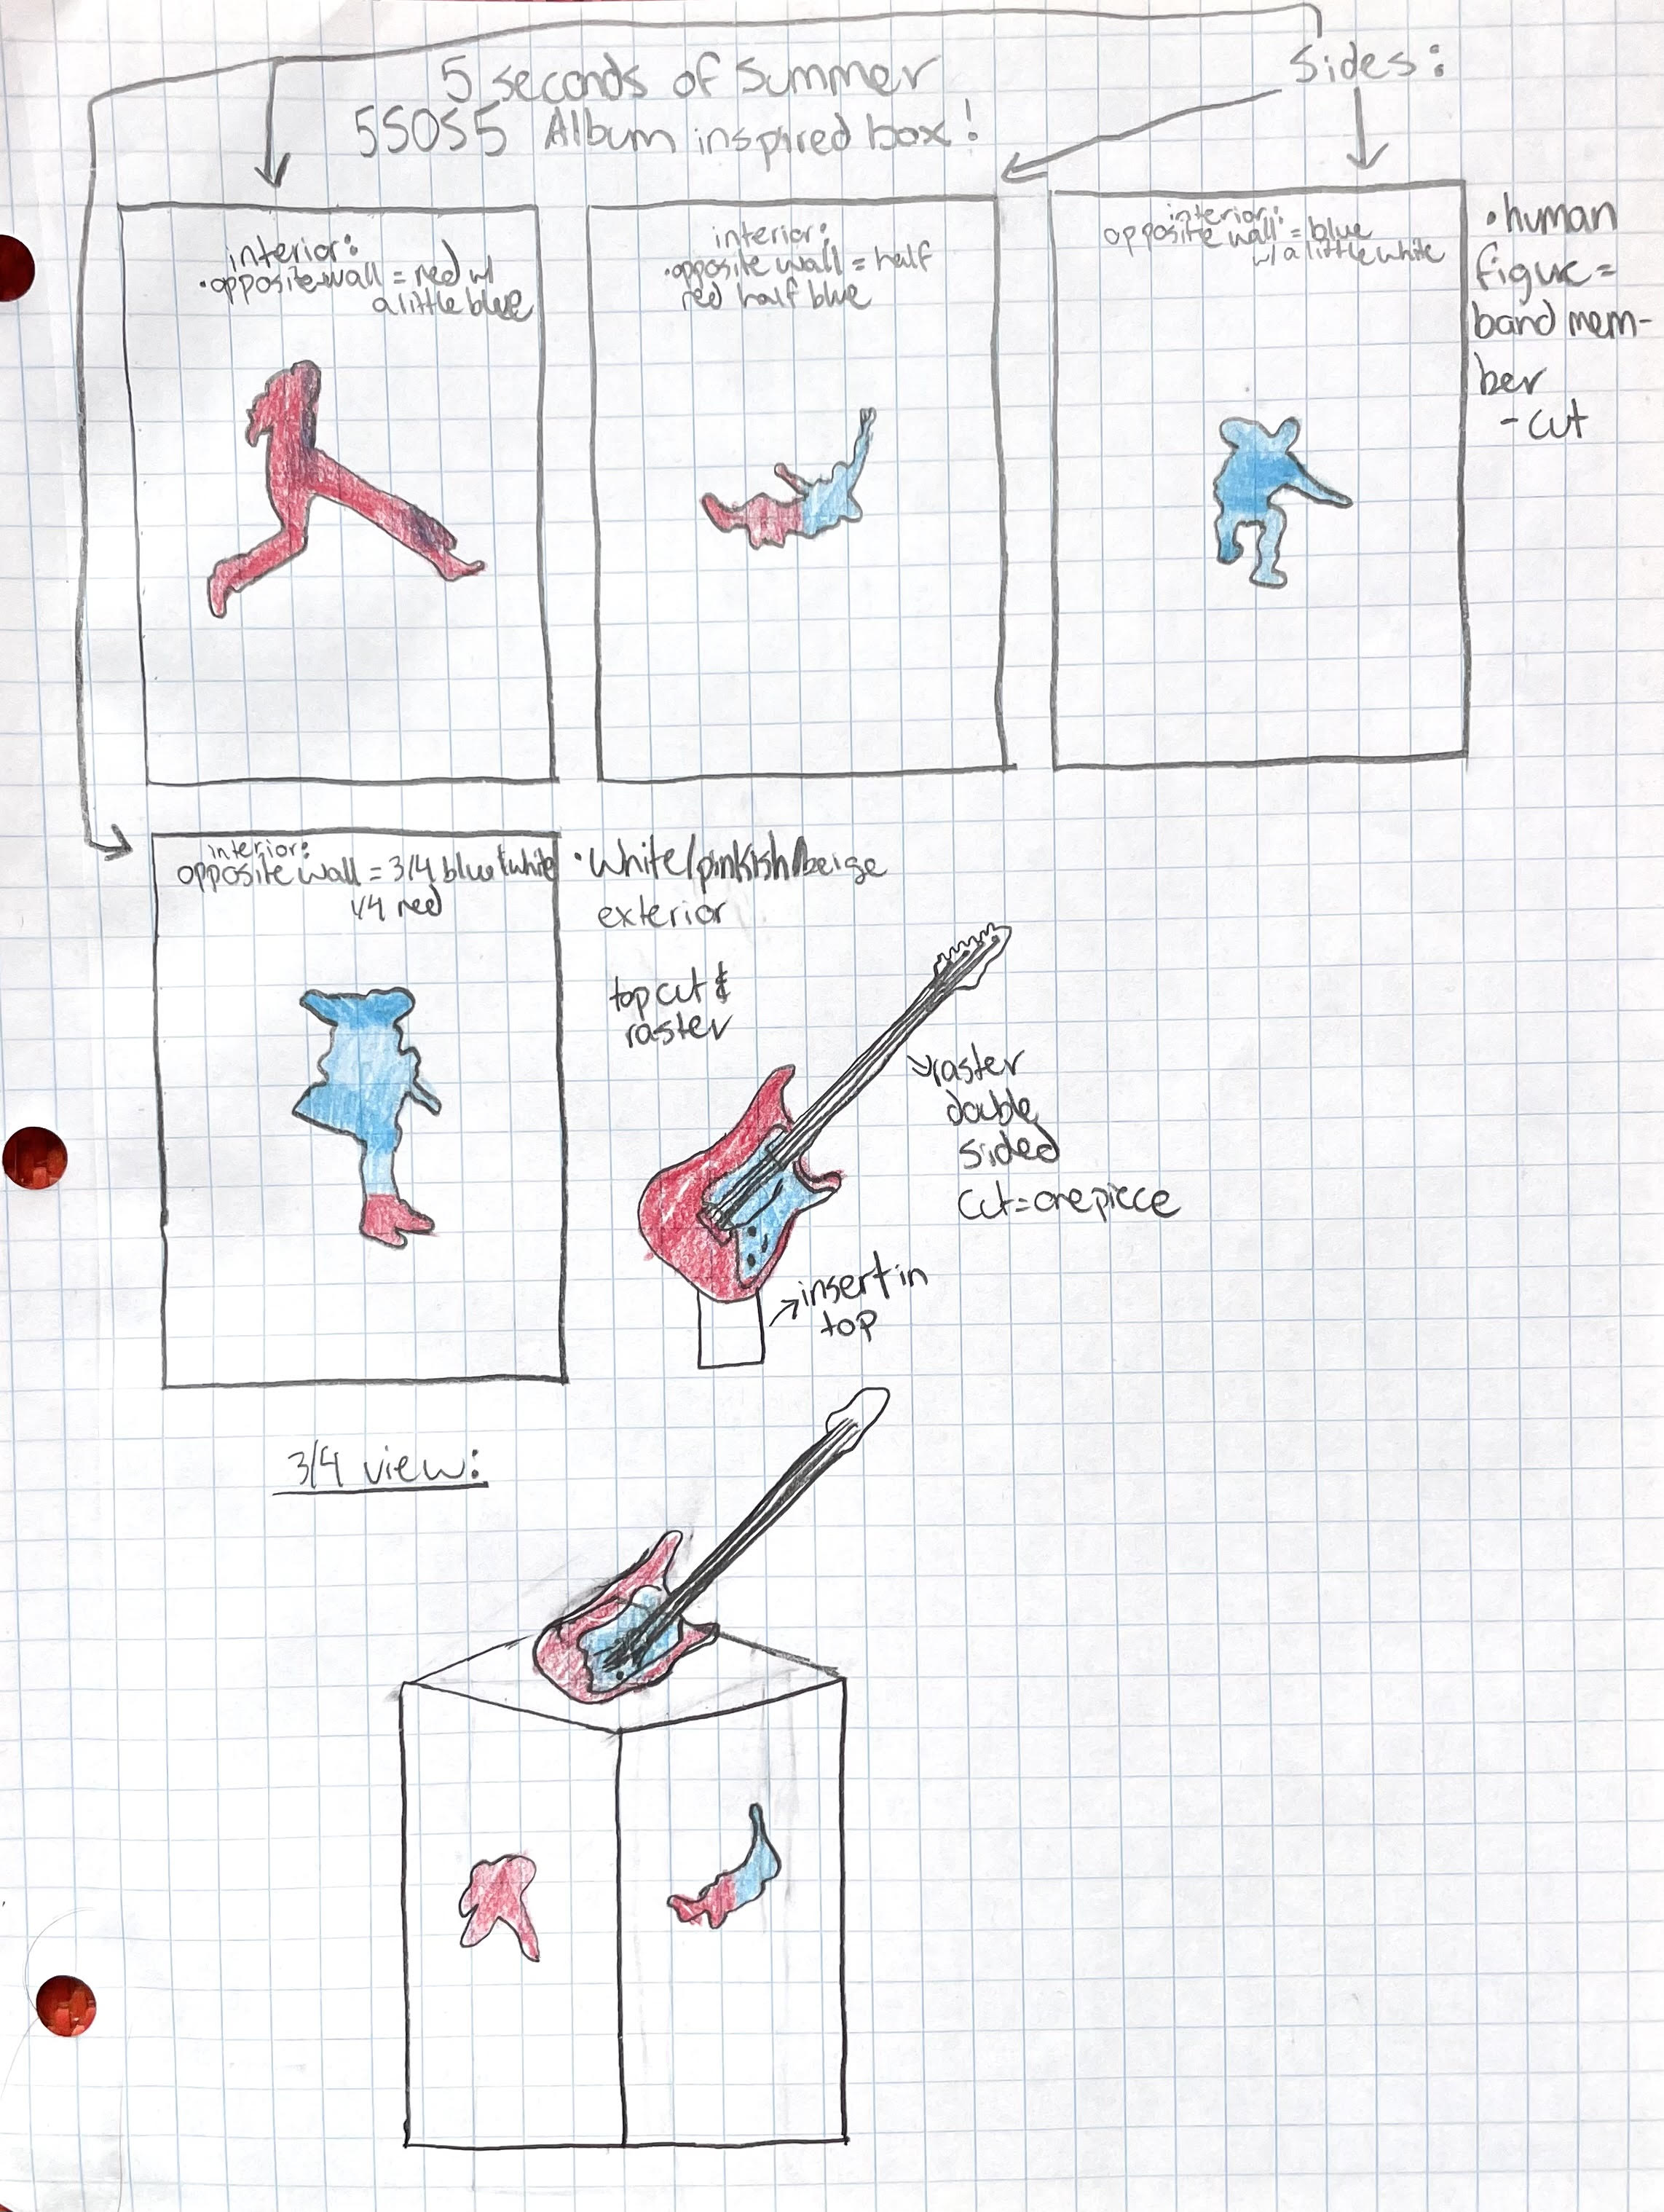 5 seconds of Summer
5SOS5 Album inspired box!
Sides:
interior:
•opposite wall = red w/
a little blue
interior:
•opposite wall = half
red half blue
interior:
opposite wall = blue
w/ a little white
•human
figure =
band mem-
ber
- cut
interior:
opposite wall = 3/4 blue & white
1/4 red
•White/pinkish/beige
exterior
top cut &
raster
raster
double
sided
Cut = one piece
insert in
top
3/4 view: